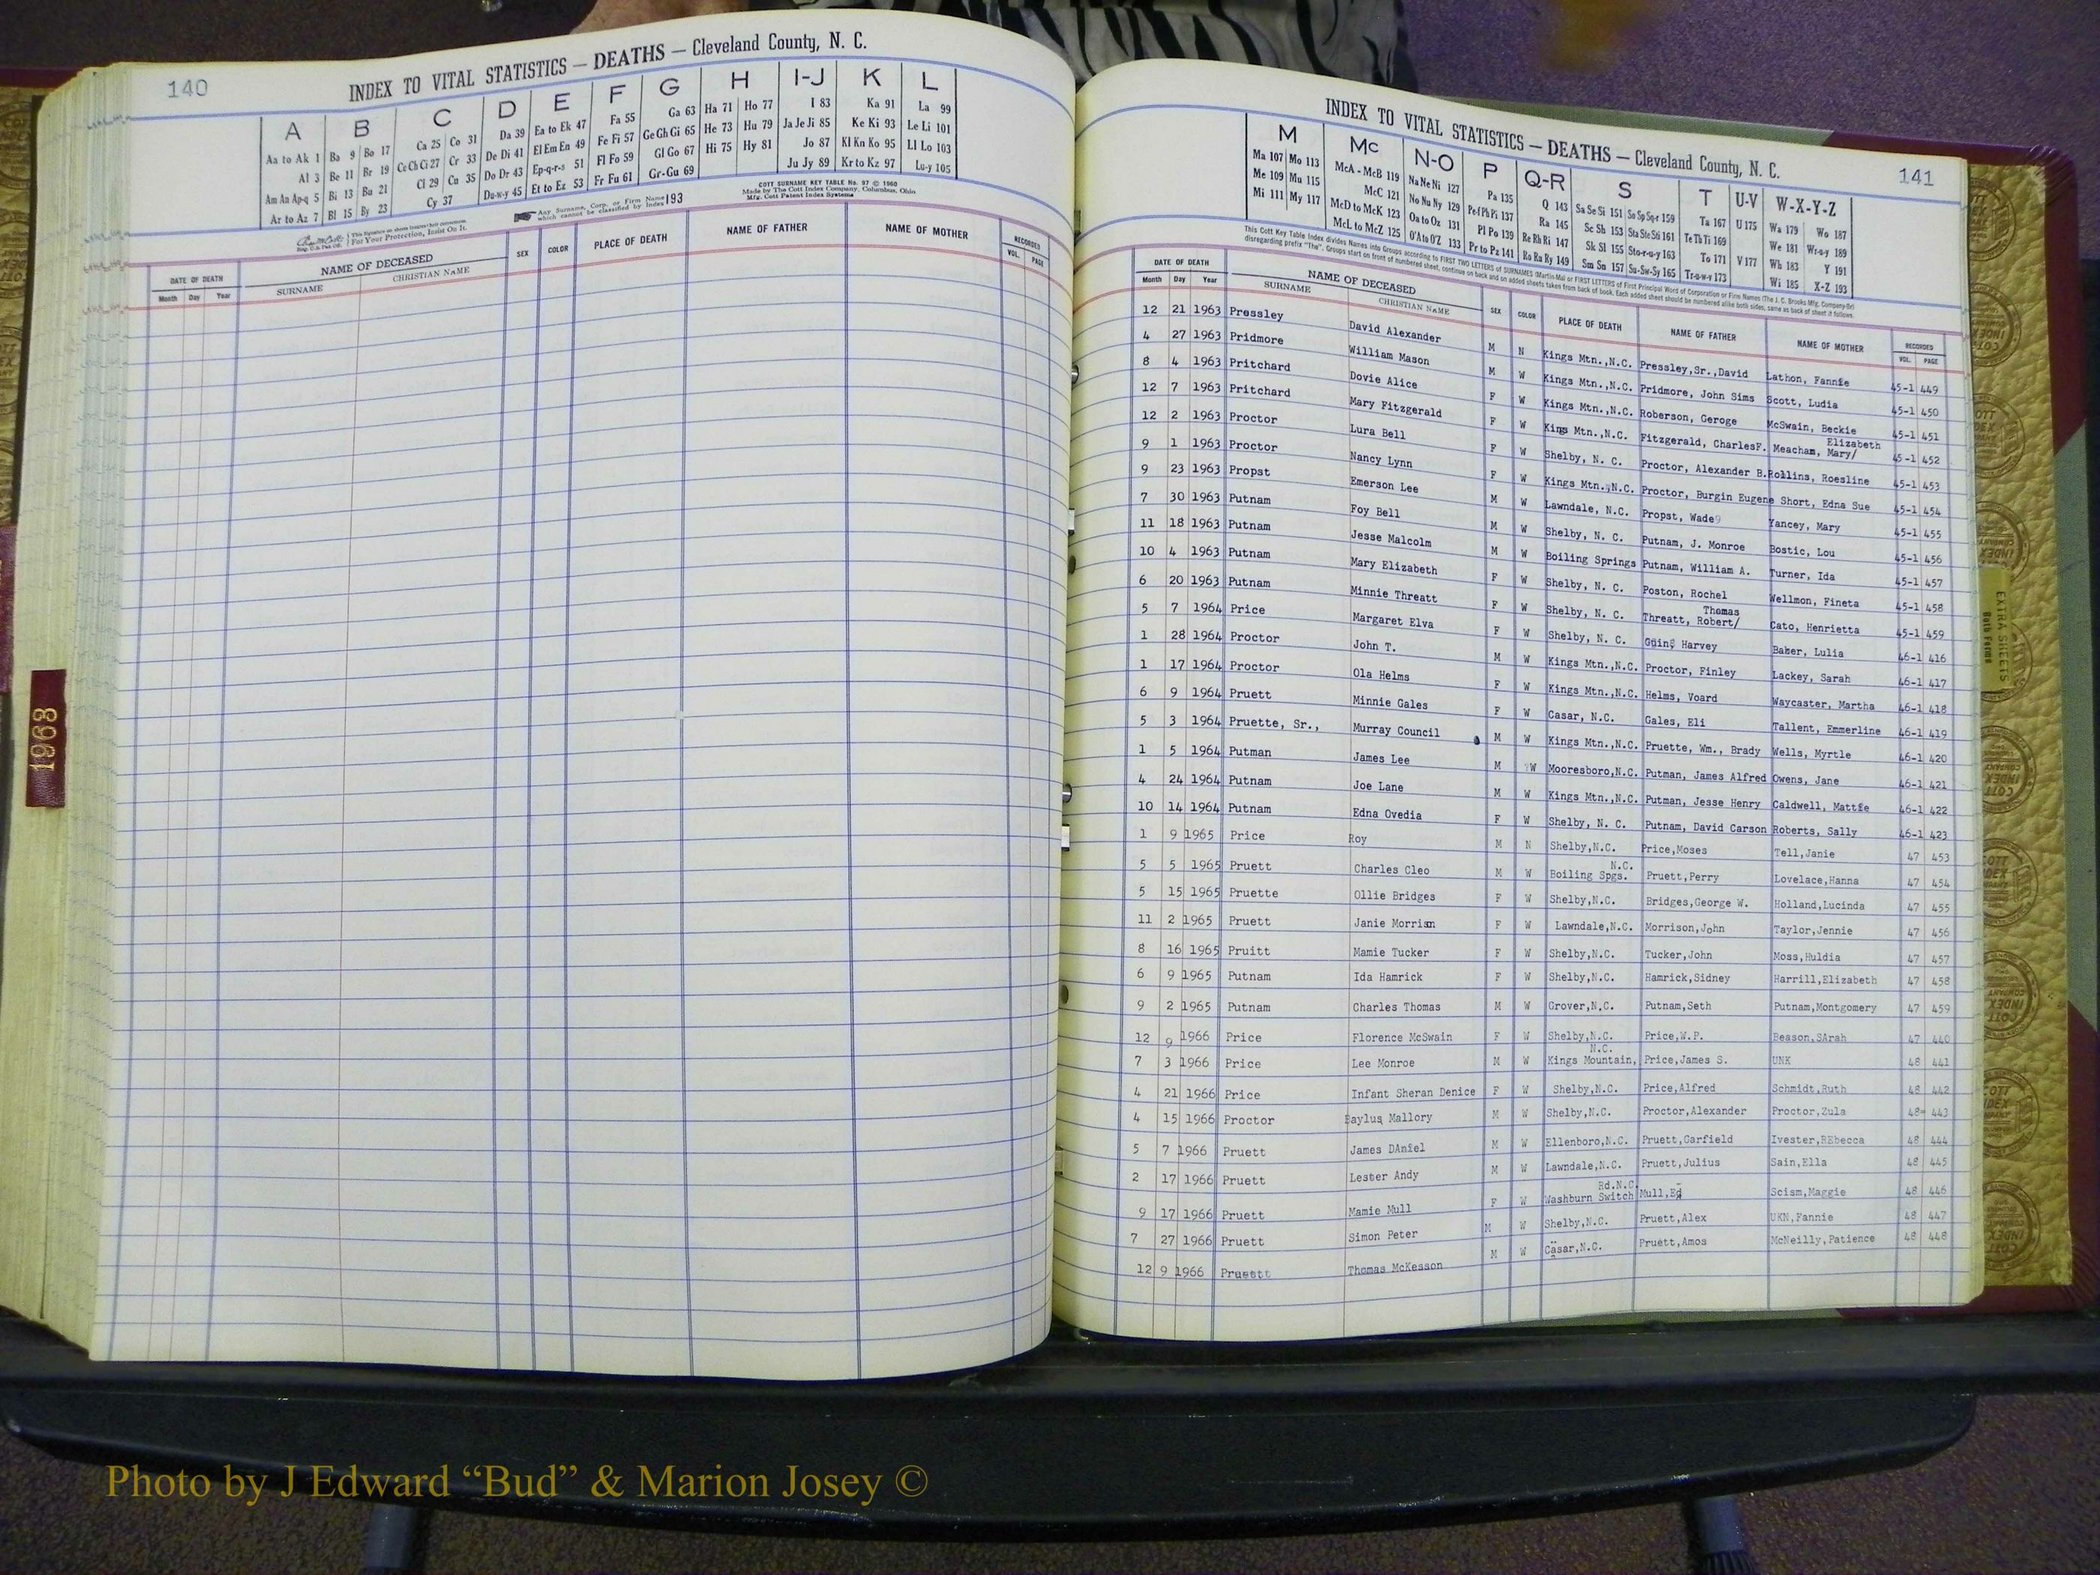 140
INDEX TO VITAL STATISTICS — DEATHS — Cleveland County, N. C.
A B C D E F G H I-J K L
Aa to Ak 1 Ba 9 Bo 17 Ca 25 Co 31 Da 39 Ea to Ek 47 Fa 55 Ga 63 Ha 71 Ho 77 I 83 Ka 91 La 99
Al 3 Be 11 Br 19 Ce Ch Ci 27 Cr 33 De Di 41 El Em En 49 Fe Fi 57 Ge Gh Gi 65 He 73 Hu 79 Ja Je Ji 85 Ke Ki 93 Le Li 101
Am An Ap-q 5 Bi 13 Bu 21 Cl 29 Cu 35 Do Dr 43 Ep-q-r-s 51 Fl Fo 59 Gl Go 67 Hi 75 Hy 81 Jo 87 Kl Kn Ko 95 Ll Lo 103
Ar to Az 7 Bl 15 By 23 Cy 37 Du-w-y 45 Et to Ez 53 Fr Fu 61 Gr-Gu 69 Ju Jy 89 Kr to Kz 97 Lu-y 105
COTT SURNAME KEY TABLE No. 97 © 1960
Made by The Cott Index Company, Columbus, Ohio
Mfg. Cott Patent Index Systems
Any Surname, Corp. or Firm Name which cannot be classified by Index 193
For Your Protection, Insist On It.
DATE OF DEATH NAME OF DECEASED SEX COLOR PLACE OF DEATH NAME OF FATHER NAME OF MOTHER RECORDED
Month Day Year SURNAME CHRISTIAN NAME VOL. PAGE
1968
INDEX TO VITAL STATISTICS — DEATHS — Cleveland County, N. C.
141
M Mc N-O P Q-R S T U-V W-X-Y-Z
Ma 107 Mo 113 McA - McB 119 Na Ne Ni 127 Pa 135 Q 143 Sa Se Si 151 So Sp Sq-r 159 Ta 167 U 175 Wa 179 Wo 187
Me 109 Mu 115 McC 121 No Nu Ny 129 Pe-f Ph Pi 137 Ra 145 Sc Sh 153 Sta Ste Sti 161 Te Th Ti 169 We 181 Wr-u-y 189
Mi 111 My 117 McD to McK 123 Oa to Oz 131 Pl Po 139 Re Rh Ri 147 Sk Sl 155 Sto-r-u-y 163 To 171 V 177 Wh 183 Y 191
McL to McZ 125 O'A to O'Z 133 Pr to Pz 141 Ro Ru Ry 149 Sm Sn 157 Su-Sw-Sy 165 Tr-u-w-y 173 Wi 185 X-Z 193
This Cott Key Table Index divides Names into Groups according to FIRST TWO LETTERS of SURNAMES (Martin-Ma) or FIRST LETTERS of First Principal Word of Corporation or Firm Names (The J. C. Brooks Mfg. Company-Br)
disregarding prefix "The". Groups start on front of numbered sheet, continue on back and on added sheets taken from back of book. Each added sheet should be numbered alike both sides, same as back of sheet it follows.
DATE OF DEATH NAME OF DECEASED SEX COLOR PLACE OF DEATH NAME OF FATHER NAME OF MOTHER RECORDED
Month Day Year SURNAME CHRISTIAN NAME VOL. PAGE
12 21 1963 Pressley David Alexander M N Kings Mtn.,N.C. Pressley,Sr.,David Lathon, Fannie 45-1 449
4 27 1963 Pridmore William Mason M W Kings Mtn.,N.C. Pridmore, John Sims Scott, Ludia 45-1 450
8 4 1963 Pritchard Dovie Alice F W Kings Mtn.,N.C. Roberson, Geroge McSwain, Beckie 45-1 451
12 7 1963 Pritchard Mary Fitzgerald F W Kings Mtn.,N.C. Fitzgerald, CharlesF. Meacham, Mary/ Elizabeth 45-1 452
12 2 1963 Proctor Lura Bell F W Shelby, N. C. Proctor, Alexander B. Rollins, Roesline 45-1 453
9 1 1963 Proctor Nancy Lynn F W Kings Mtn.,N.C. Proctor, Burgin Eugene Short, Edna Sue 45-1 454
9 23 1963 Propst Emerson Lee M W Lawndale, N.C. Propst, Wade Yancey, Mary 45-1 455
7 30 1963 Putnam Foy Bell M W Shelby, N. C. Putnam, J. Monroe Bostic, Lou 45-1 456
11 18 1963 Putnam Jesse Malcolm M W Boiling Springs Putnam, William A. Turner, Ida 45-1 457
10 4 1963 Putnam Mary Elizabeth F W Shelby, N. C. Poston, Rochel Wellmon, Fineta 45-1 458
6 20 1963 Putnam Minnie Threatt F W Shelby, N. C. Threatt, Robert/ Thomas Cato, Henrietta 45-1 459
5 7 1964 Price Margaret Elva F W Shelby, N. C. Harvey Baber, Lulia 46-1 416
1 28 1964 Proctor John T. M W Kings Mtn.,N.C. Proctor, Finley Lackey, Sarah 46-1 417
1 17 1964 Proctor Ola Helms F W Kings Mtn.,N.C. Helms, Voard Waycaster, Martha 46-1 418
6 9 1964 Pruett Minnie Gales F W Casar, N.C. Gales, Eli Tallent, Emmerline 46-1 419
5 3 1964 Pruette, Sr., Murray Council M W Kings Mtn.,N.C. Pruette, Wm., Brady Wells, Myrtle 46-1 420
1 5 1964 Putman James Lee M W Mooresboro,N.C. Putman, James Alfred Owens, Jane 46-1 421
4 24 1964 Putnam Joe Lane M W Kings Mtn.,N.C. Putman, Jesse Henry Caldwell, Mattie 46-1 422
10 14 1964 Putnam Edna Ovedia F W Shelby, N. C. Putnam, David Carson Roberts, Sally 46-1 423
1 9 1965 Price Roy M N Shelby,N.C. Price,Moses Tell,Janie 47 453
5 5 1965 Pruett Charles Cleo M W Boiling Spgs. N.C. Pruett,Perry Lovelace,Hanna 47 454
5 15 1965 Pruette Ollie Bridges F W Shelby,N.C. Bridges,George W. Holland,Lucinda 47 455
11 2 1965 Pruett Janie Morrison F W Lawndale,N.C. Morrison,John Taylor,Jennie 47 456
8 16 1965 Pruitt Mamie Tucker F W Shelby,N.C. Tucker,John Moss,Huldia 47 457
6 9 1965 Putnam Ida Hamrick F W Shelby,N.C. Hamrick,Sidney Harrill,Elizabeth 47 458
9 2 1965 Putnam Charles Thomas M W Grover,N.C. Putnam,Seth Putnam,Montgomery 47 459
12 9 1966 Price Florence McSwain F W Shelby,N.C. Price,W.P. Beason,SArah 47 440
7 3 1966 Price Lee Monroe M W Kings Mountain, N.C. Price,James S. UNK 48 441
4 21 1966 Price Infant Sheran Denice F W Shelby,N.C. Price,Alfred Schmidt,Ruth 48 442
4 15 1966 Proctor Baylus Mallory M W Shelby,N.C. Proctor,Alexander Proctor,Zula 48 443
5 7 1966 Pruett James DAniel M W Ellenboro,N.C. Pruett,Garfield Ivester,REbecca 48 444
2 17 1966 Pruett Lester Andy M W Lawndale,N.C. Pruett,Julius Sain,Ella 48 445
9 17 1966 Pruett Mamie Mull F W Washburn Switch Rd.N.C. Mull,Ed Scism,Maggie 48 446
7 27 1966 Pruett Simon Peter M W Shelby,N.C. Pruett,Alex UKN,Fannie 48 447
12 9 1966 Pruett Thomas McKesson M W Casar,N.C. Pruett,Amos McNeilly,Patience 48 448
EXTRA SHEETS
Photo by J Edward “Bud” & Marion Josey ©